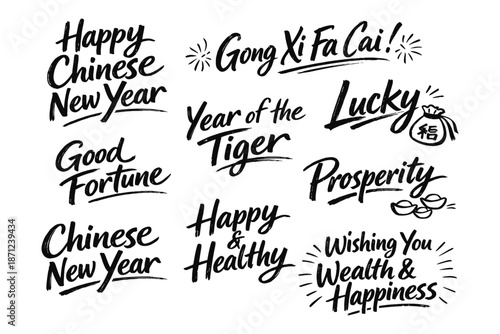 Happy
Chinese
New Year
Good
Fortune
Chinese
New Year
Gong Xi Fa Cai!
Year of the
Tiger
Happy
&
Healthy
Lucky
Prosperity
Wishing You
Wealth &
Happiness
Adobe Stock | #1871239434